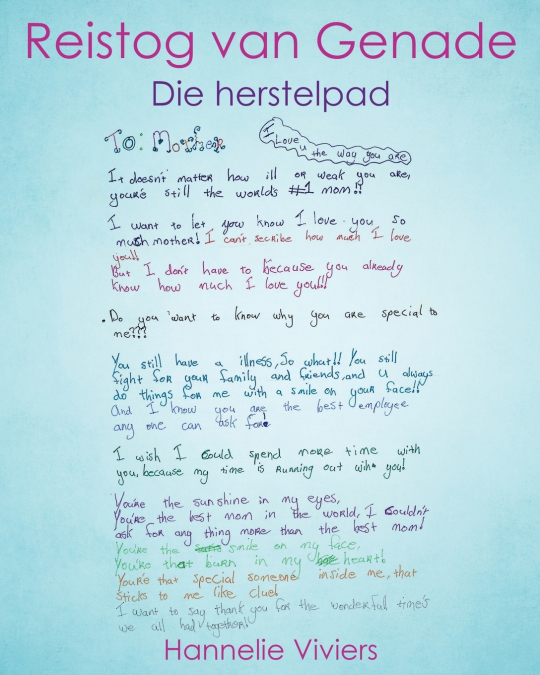 Reistog van Genade
Die herstelpad
To: Mother
I Love u the way you are
It doesn't matter how ill or weak you are,
you're still the worlds #1 mom!!
I want to let you know I love you so
much mother! I can't scribe how much I love
you!!
But I don't have to because you already
know how much I love you!!!
. Do you want to know why you are special to
me???
You still have a illness, So what!! You still
fight for your family and friends, and u always
do things for me with a smile on your face!!
And I know you are the best employee
any one can ask for!
I wish I could spend more time with
you, because my time is running out with you!
You're the sunshine in my eyes,
You're the best mom in the world, I couldn't
ask for any thing more than the best mom!
You're the smile on my face,
You're that burn in my heart!
You're that special someone inside me, that
sticks to me like clue!
I want to say thank you for the wonderfull time's
we all had together!
Hannelie Viviers